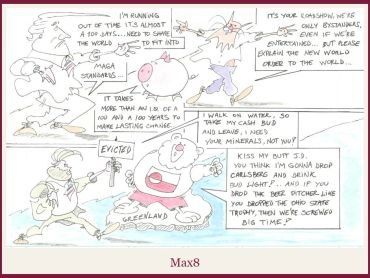 I'M RUNNING
OUT OF TIME IT'S ALMOST
A 100 DAYS...NEED TO SHAPE
THE WORLD TO FIT INTO
MAGA
STANDARDS...
IT'S YOUR ROADSHOW, WE'RE
ONLY BYSTANDERS,
EVEN IF WE'RE
ENTERTAINED... BUT PLEASE
EXPLAIN THE NEW WORLD
ORDER TO THE WORLD...
IT TAKES
MORE THAN AN I.Q. OF A
100 AND A 100 YEARS TO
MAKE LASTING CHANGE
EVICTED
I WALK ON WATER, SO
TAKE MY CASH BUD
AND LEAVE, I NEED
YOUR MINERALS, NOT YOU!
KISS MY BUTT J.D.
YOU THINK I'M GONNA DROP
CARLSBERG AND DRINK
BUD LIGHT!?... AND IF YOU
DROP THE BEER PITCHER LIKE
YOU DROPPED THE OHIO STATE
TROPHY, THEN WE'RE SCREWED
BIG TIME!
GREENLAND
Max8